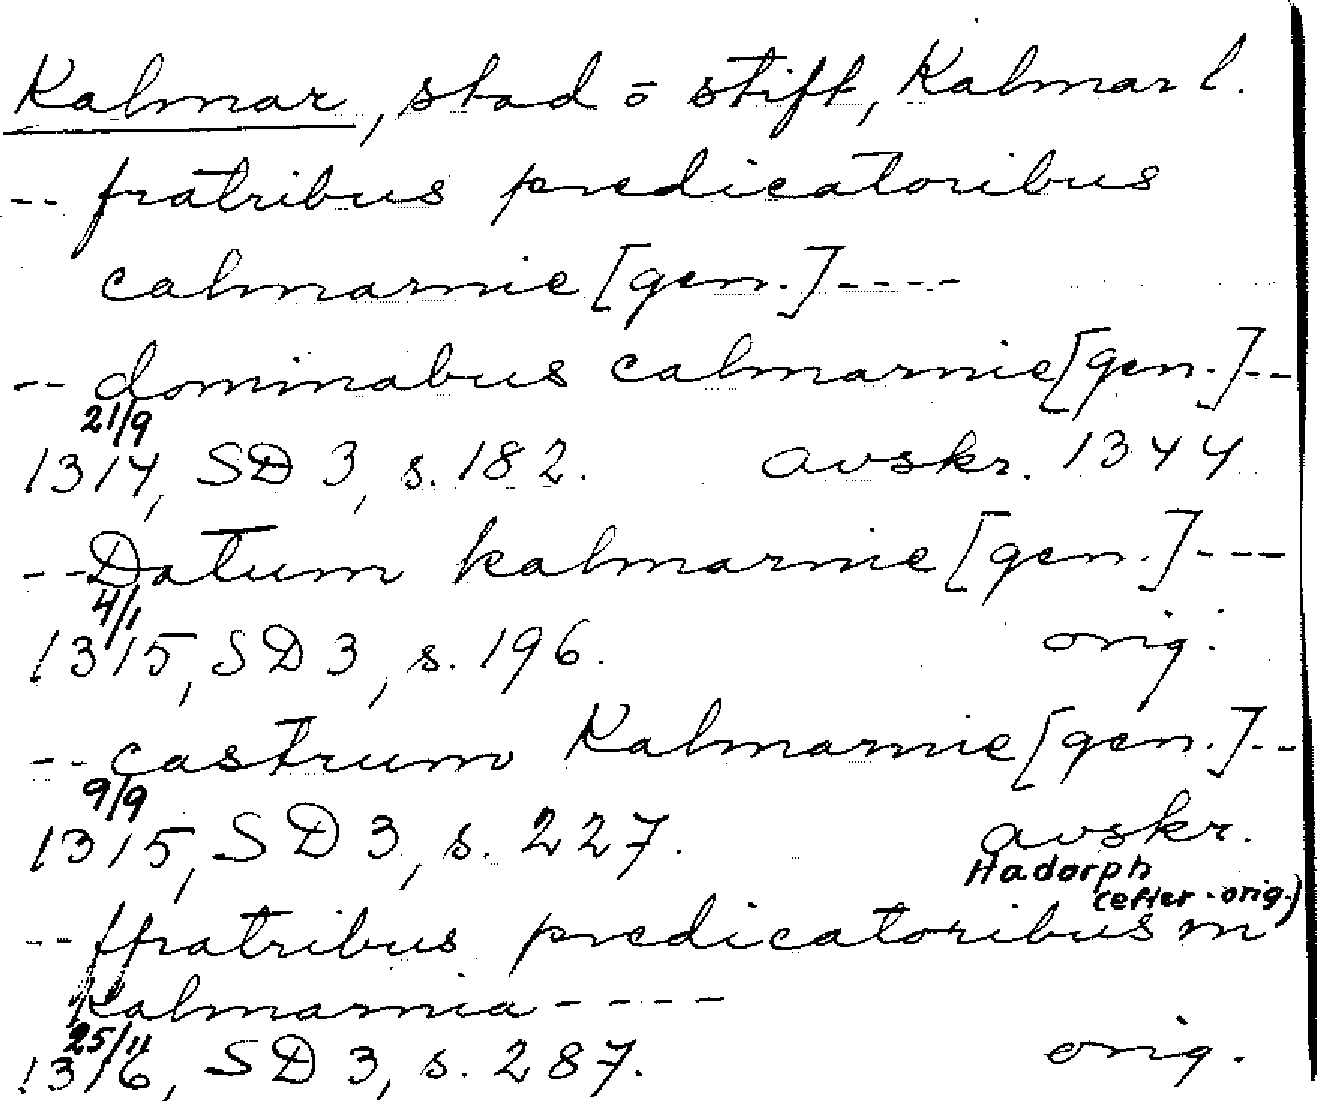 Kalmar, stad o stift, Kalmar l.
-- fratribus predicatoribus
calmarnie [gen.] ----
-- dominabus calmarnie [gen.] --
21/9
1314, SD 3, s. 182. avskr. 1344
-- Datum kalmarnie [gen.] ---
4/1
1315, SD 3, s. 196. orig.
-- castrum Kalmarnie [gen.] --
9/9
1315, SD 3, s. 227. avskr.
Hadorph
(efter orig.)
-- ffratribus predicatoribus in
kalmarnia ----
25/11
1316, SD 3, s. 287. orig.